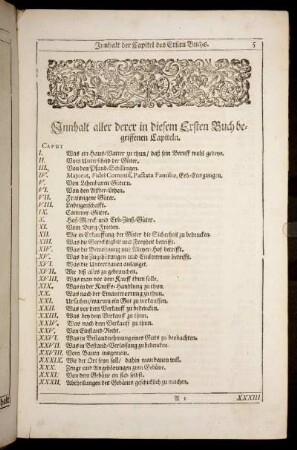 Innhalt der Capitel des Ersten Buchs. 5
Innhalt aller derer in diesem Ersten Buch be-
griffenen Capiteln.
CAPUT
I. Was ein Haus-Vatter zu thun / daß sein Beruff wohl gehen.
II. Vom Unterscheid der Güter.
III. Von den Pfand-Schillingen.
IV. Majorat, Fidei Commiss, Pactata Familiæ, Erb-Einigungen.
V. Von Lehenbaren Gütern.
VI. Von den After-Lehen.
VII. Freyeigene Güter.
VIII. Leibgedingschafft.
IX. Gemeine Güter.
X. und Erb-Zinß-Güter.
XI. Vom Burg-Frieden.
XII. Wie in Erkauffung der Güter die Sicherheit zu bedencken.
XIII. Was die Gerechtigkeit und Freyheit betrifft.
XIV. Was die Benutzung mit betrifft.
XV. Was die Zugehörungen und Einkommen betrifft.
XVI. Was die Unterthanen anlanget.
XVII. Wie diß alles zu gebrauchen.
XVIII. Was man vor dem Kauff thun solle.
XIX. Was in der Kauffs-Handlung zu thun.
XX. Was nach der Einantwortung zu thun.
XXI. Ursachen / warum ein Gut zu verkauffen.
XXII. Was vor dem Verkauff zu bedencken.
XXIII. Was bey dem Verkauff zu thun.
XXIV. Was nach dem Verkauff zu thun.
XXV. Von Einstand-Recht.
XXVI. Was in Bestandnehmung eines Guts zu beobachten.
XXVII. Was in Bestand-Verlassung zu bedencken.
XXVIII. Vom Bauen insgemein.
XXIX. Wie der Ort seyn soll / dahin man bauen will.
XXX. Zeuge und Angehörungen zum Gebäue.
XXXI. Von dem Gebäue an sich selbst.
XXXII. Abtheilungen des Gebäues geschicklich zu machen.
XXXIII